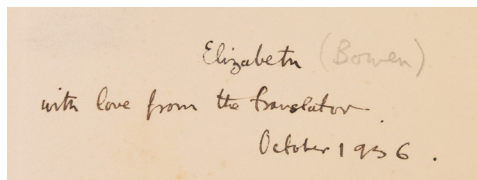 Elizabeth (Bowen)
with love from the translator.
October 1936.